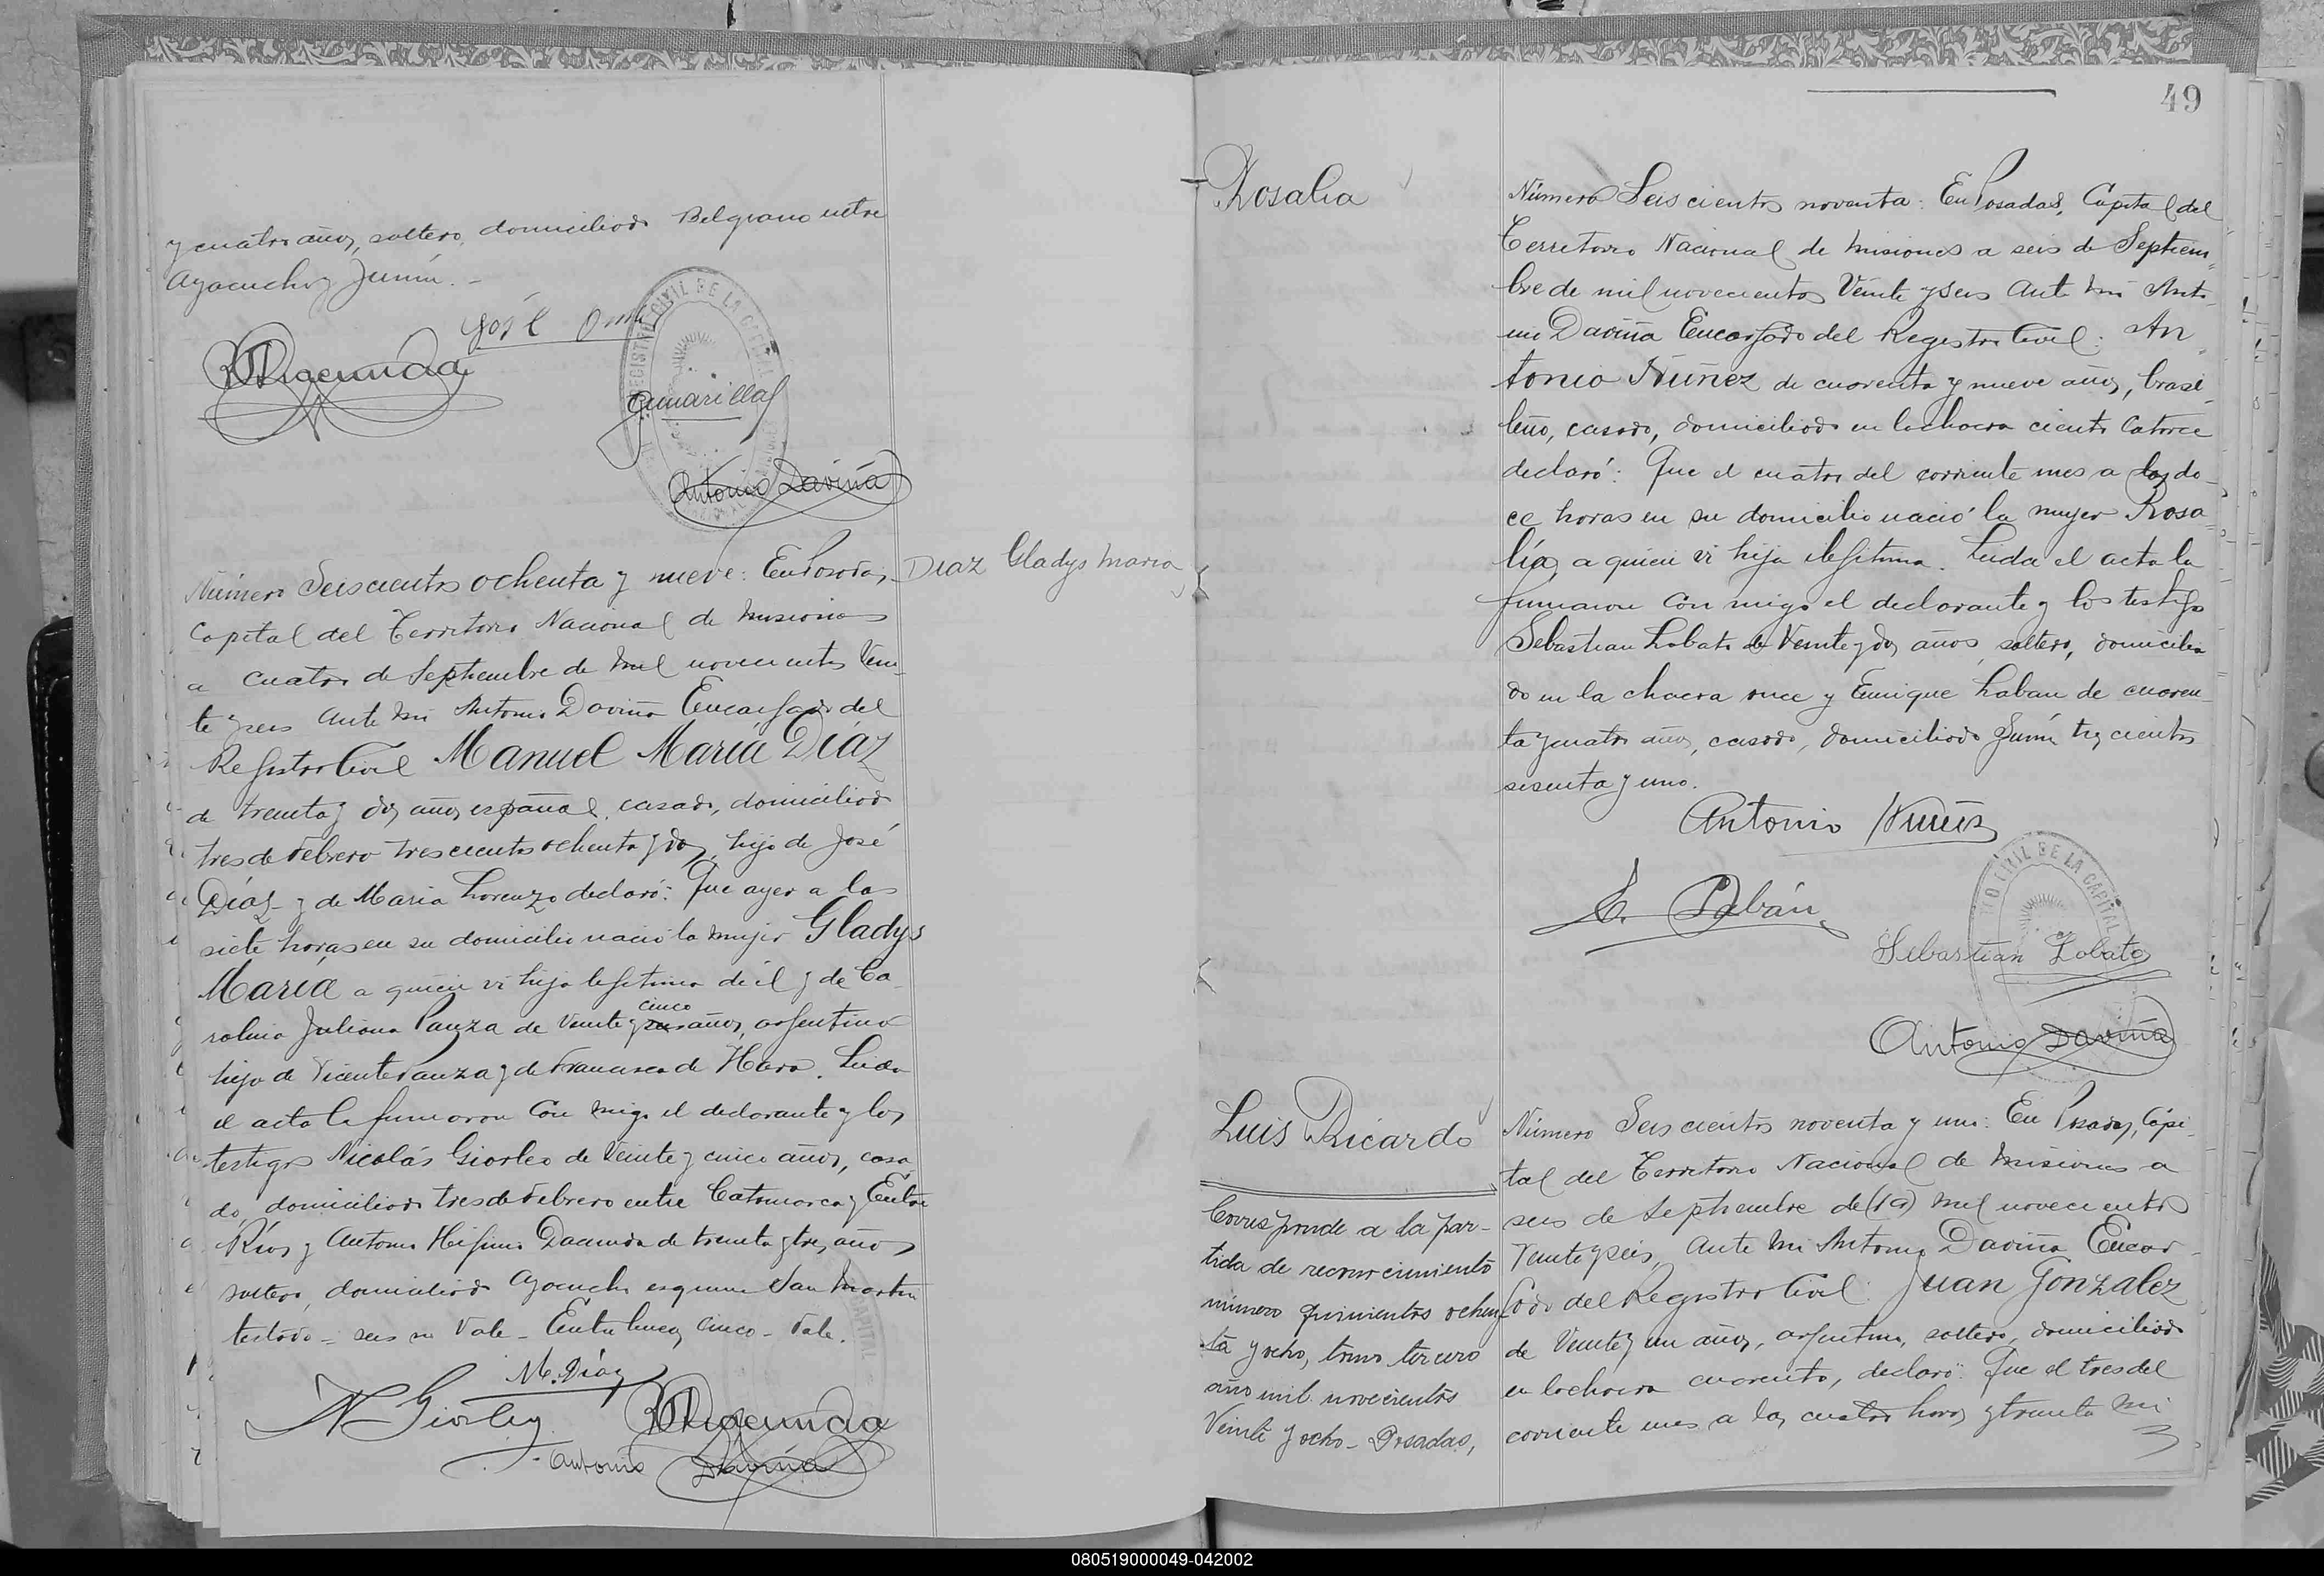 y cuatro años, soltero, domiciliado Belgrano entre
Ayacucho y Junín.-
José
Antonio Daviña
Número Seiscientos ochenta y nueve: En Posadas,
Capital del Territorio Nacional de Misiones
a cuatro de Septiembre de mil novecientos Vein-
te y seis Ante mi Antonio Daviña Encargado del
Registro Civil Manuel María Díaz
de treinta y dos años español, casado, domiciliado
tres de Febrero trescientos ochenta y dos, hijo de José
Díaz y de Maria Lorenzo declaró: Que ayer a las
siete horas en su domicilio nació la mujer Gladys
María a quien vi hija legitima de él y de Ca-
rolina Juliana Panza de Veinte y seis cinco años, argentina
hija de Vicente Panza y de Francisca de Haro. Leida
el acta la firmaron con migo el declarante y los
testigos Nicolás de Veinte y cinco años, casa
do, domiciliado tres de Febrero entre Catamarca y Entre
Ríos y Antonio Higinio de treinta y tres años
soltero, domiciliado Ayacucho esquina San Martin
testado - seis no Vale - Entre lineas cinco - Vale.
M. Díaz
Antonio Daviña
DIAZ Gladys Maria
49
Rosalia
Número Seiscientos noventa: En Posadas, Capital del
Territorio Nacional de Misiones a seis de Septiem-
bre de mil novecientos Veinte y seis Ante mi Anto-
nio Daviña Encargado del Registro Civil: An
tonio Núñez de cuarenta y nueve años, brasi-
leño, casado, domiciliado en la chacra ciento catorce
declaró: Que el cuatro del corriente mes a las do-
ce horas en su domicilio nació la mujer Rosa-
lía, a quien vi hija ilegitima. Leida el acta la
firmaron con migo el declarante y los testigos
Sebastian Lobato de Veinte y dos años, soltero, domicilia
do en la chacra once y Enrique Laban de cuaren-
ta y cuatro años, casado, domiciliado Junín tres cientos
sesenta y uno.
Antonio Nuñez
E. Labán
Sebastian Lobato
Antonio Daviña
Luis Ricardo
Corresponde a la par-
tida de reconocimiento
número quinientos ochen
ta y ocho, tomo tercero
año mil novecientos
Veinte y ocho - Posadas,
Número Seiscientos noventa y uno: En Posadas, Capi-
tal del Territorio Nacional de Misiones a
seis de Septiembre de mil novecientos
Veinte y seis, Ante mi Antonio Daviña Encar-
gado del Registro Civil: Juan Gonzalez
de Veinte y un años, argentino, soltero, domiciliado
en la chacra cuarenta, declaró: Que el tres del
corriente mes a las cuatro horas y treinta mi
080519000049-042002